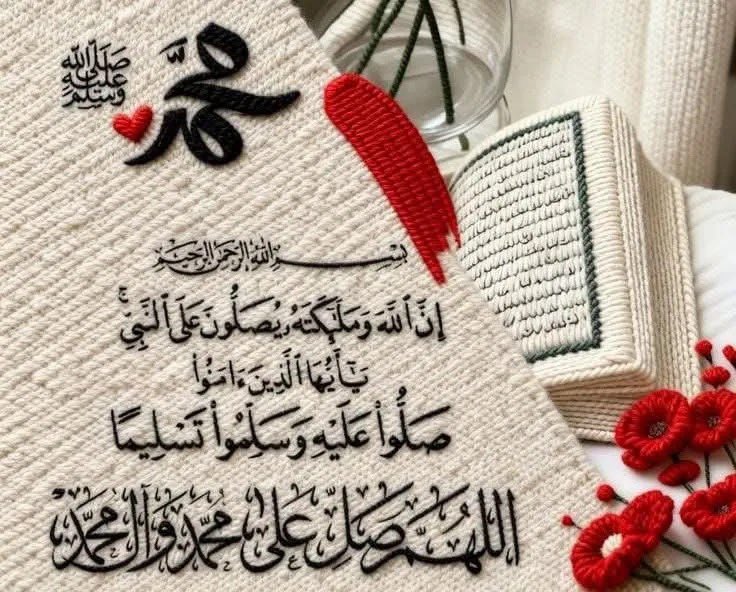 محمد
صلى الله عليه وسلم
بِسْمِ اللهِ الرَّحْمٰنِ الرَّحِيْمِ
إِنَّ ٱللَّهَ وَمَلَٰٓئِكَتَهُۥ يُصَلُّونَ عَلَى ٱلنَّبِيِّ ۚ
يَٰٓأَيُّهَا ٱلَّذِينَ ءَامَنُوا۟
صَلُّوا۟ عَلَيْهِ وَسَلِّمُوا۟ تَسْلِيمًا
اللهُمَّ صَلِّ عَلَى مُحَمَّدٍ وَآلِ مُحَمَّدٍ